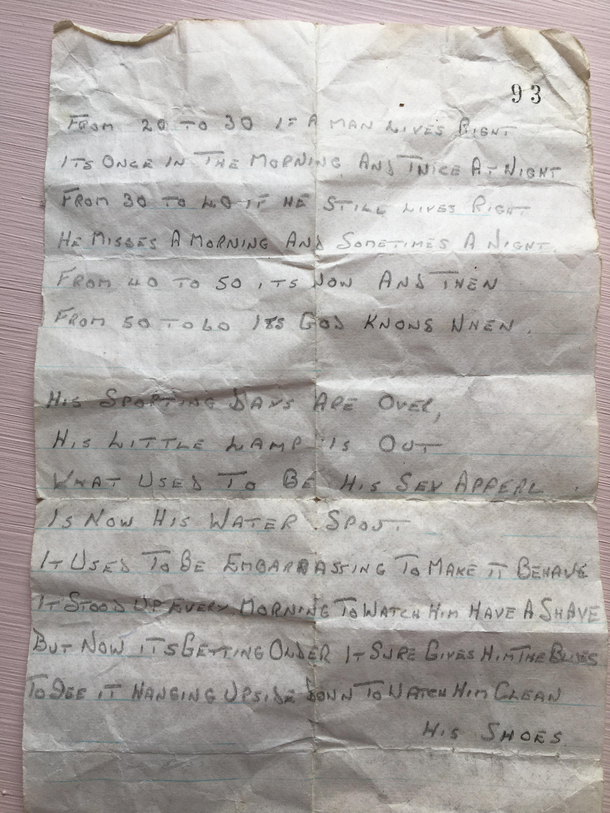 93
FROM 20 TO 30 IF A MAN LIVES RIGHT
ITS ONCE IN THE MORNING AND TWICE AT NIGHT
FROM 30 TO 40 IF HE STILL LIVES RIGHT
HE MISSES A MORNING AND SOMETIMES A NIGHT.
FROM 40 TO 50 ITS NOW AND THEN
FROM 50 TO 60 ITS GOD KNOWS WHEN.
HIS SPORTING DAYS ARE OVER,
HIS LITTLE LAMP IS OUT
WHAT USED TO BE HIS SEX APPEAL
IS NOW HIS WATER SPOUT
IT USED TO BE EMBARRASSING TO MAKE IT BEHAVE
IT STOOD UP EVERY MORNING TO WATCH HIM HAVE A SHAVE
BUT NOW ITS GETTING OLDER IT SURE GIVES HIM THE BLUES
TO SEE IT HANGING UPSIDE DOWN TO WATCH HIM CLEAN
HIS SHOES.